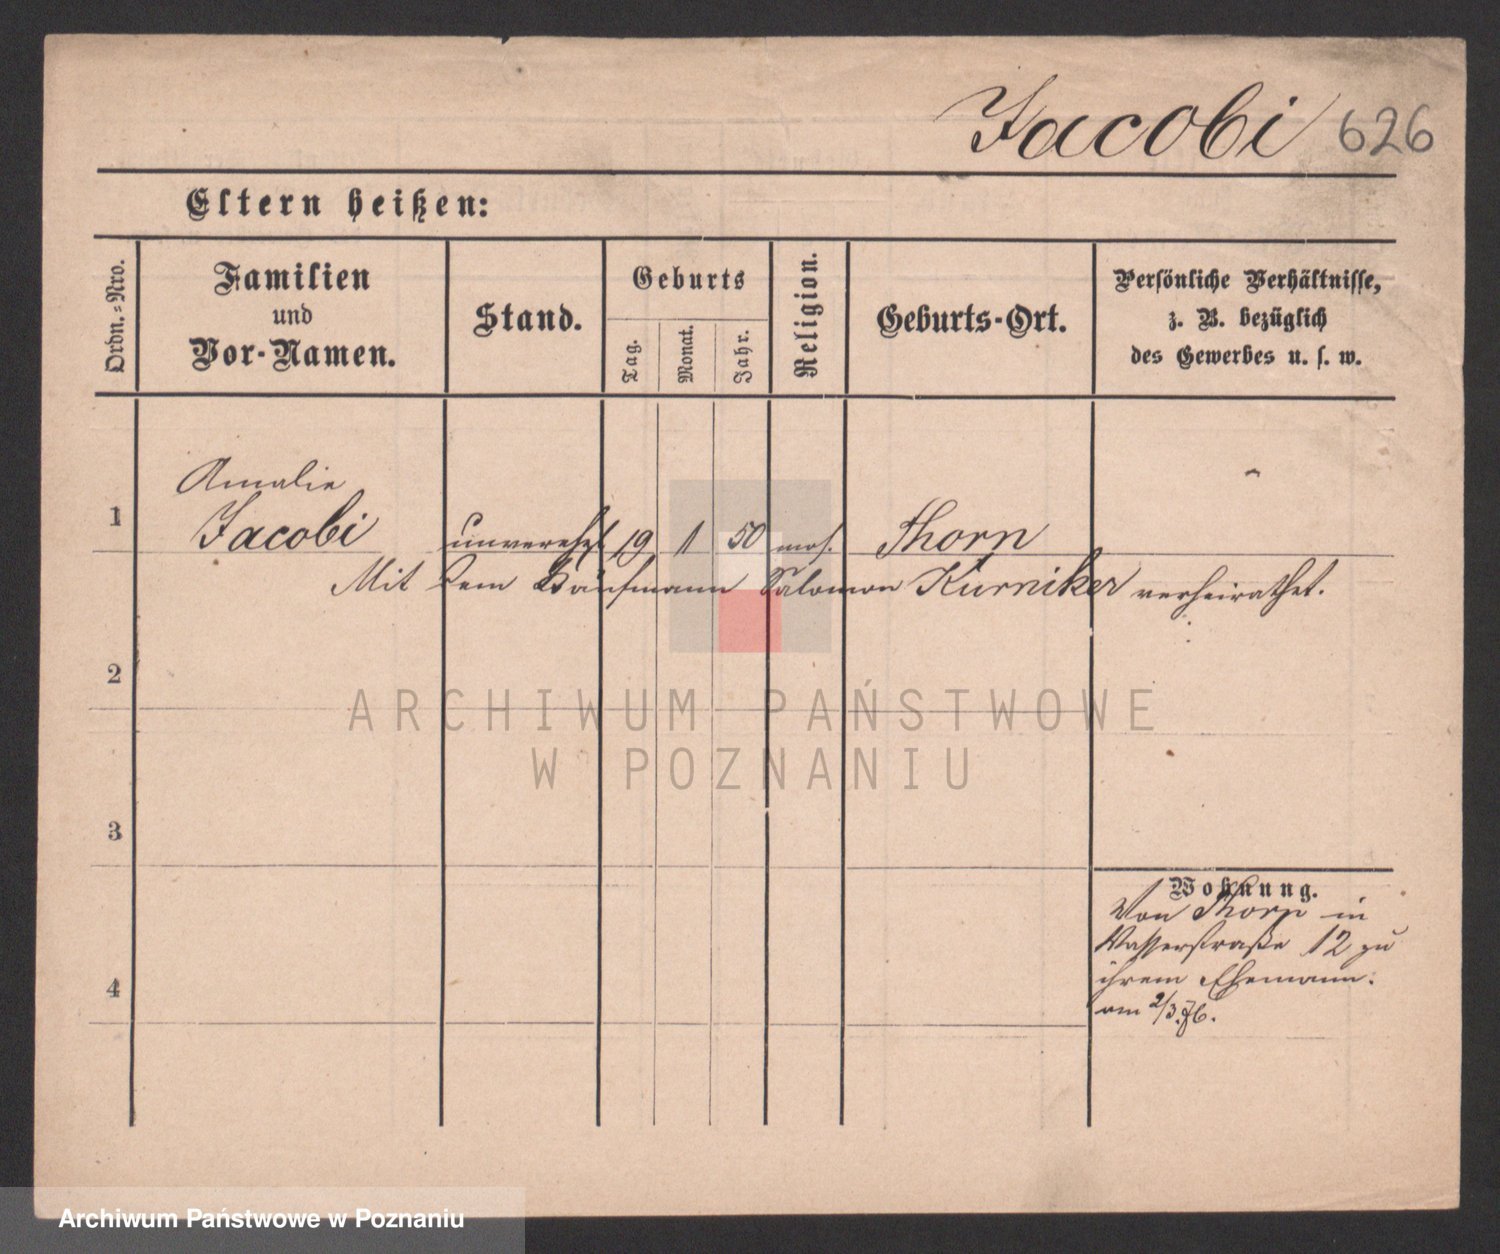 Jacobi 626
Eltern heißen:
Ordn.-Nro.
Familien
und
Vor-Namen.
Stand.
Geburts
Tag.
Monat.
Jahr.
Religion.
Geburts-Ort.
Persönliche Verhältnisse,
z. B. bezüglich
des Gewerbes u. s. w.
Amalie
1 Jacobi unverehl. 19 1 50 mos. Thorn
Mit dem Kaufmann Salomon Kurniker verheirathet.
2
ARCHIWUM PAŃSTWOWE
W POZNANIU
3
Wohnung.
Von Thorn in
Wasserstraße 12 zu
ihrem Ehemann.
am 2/3.76.
4
Archiwum Państwowe w Poznaniu